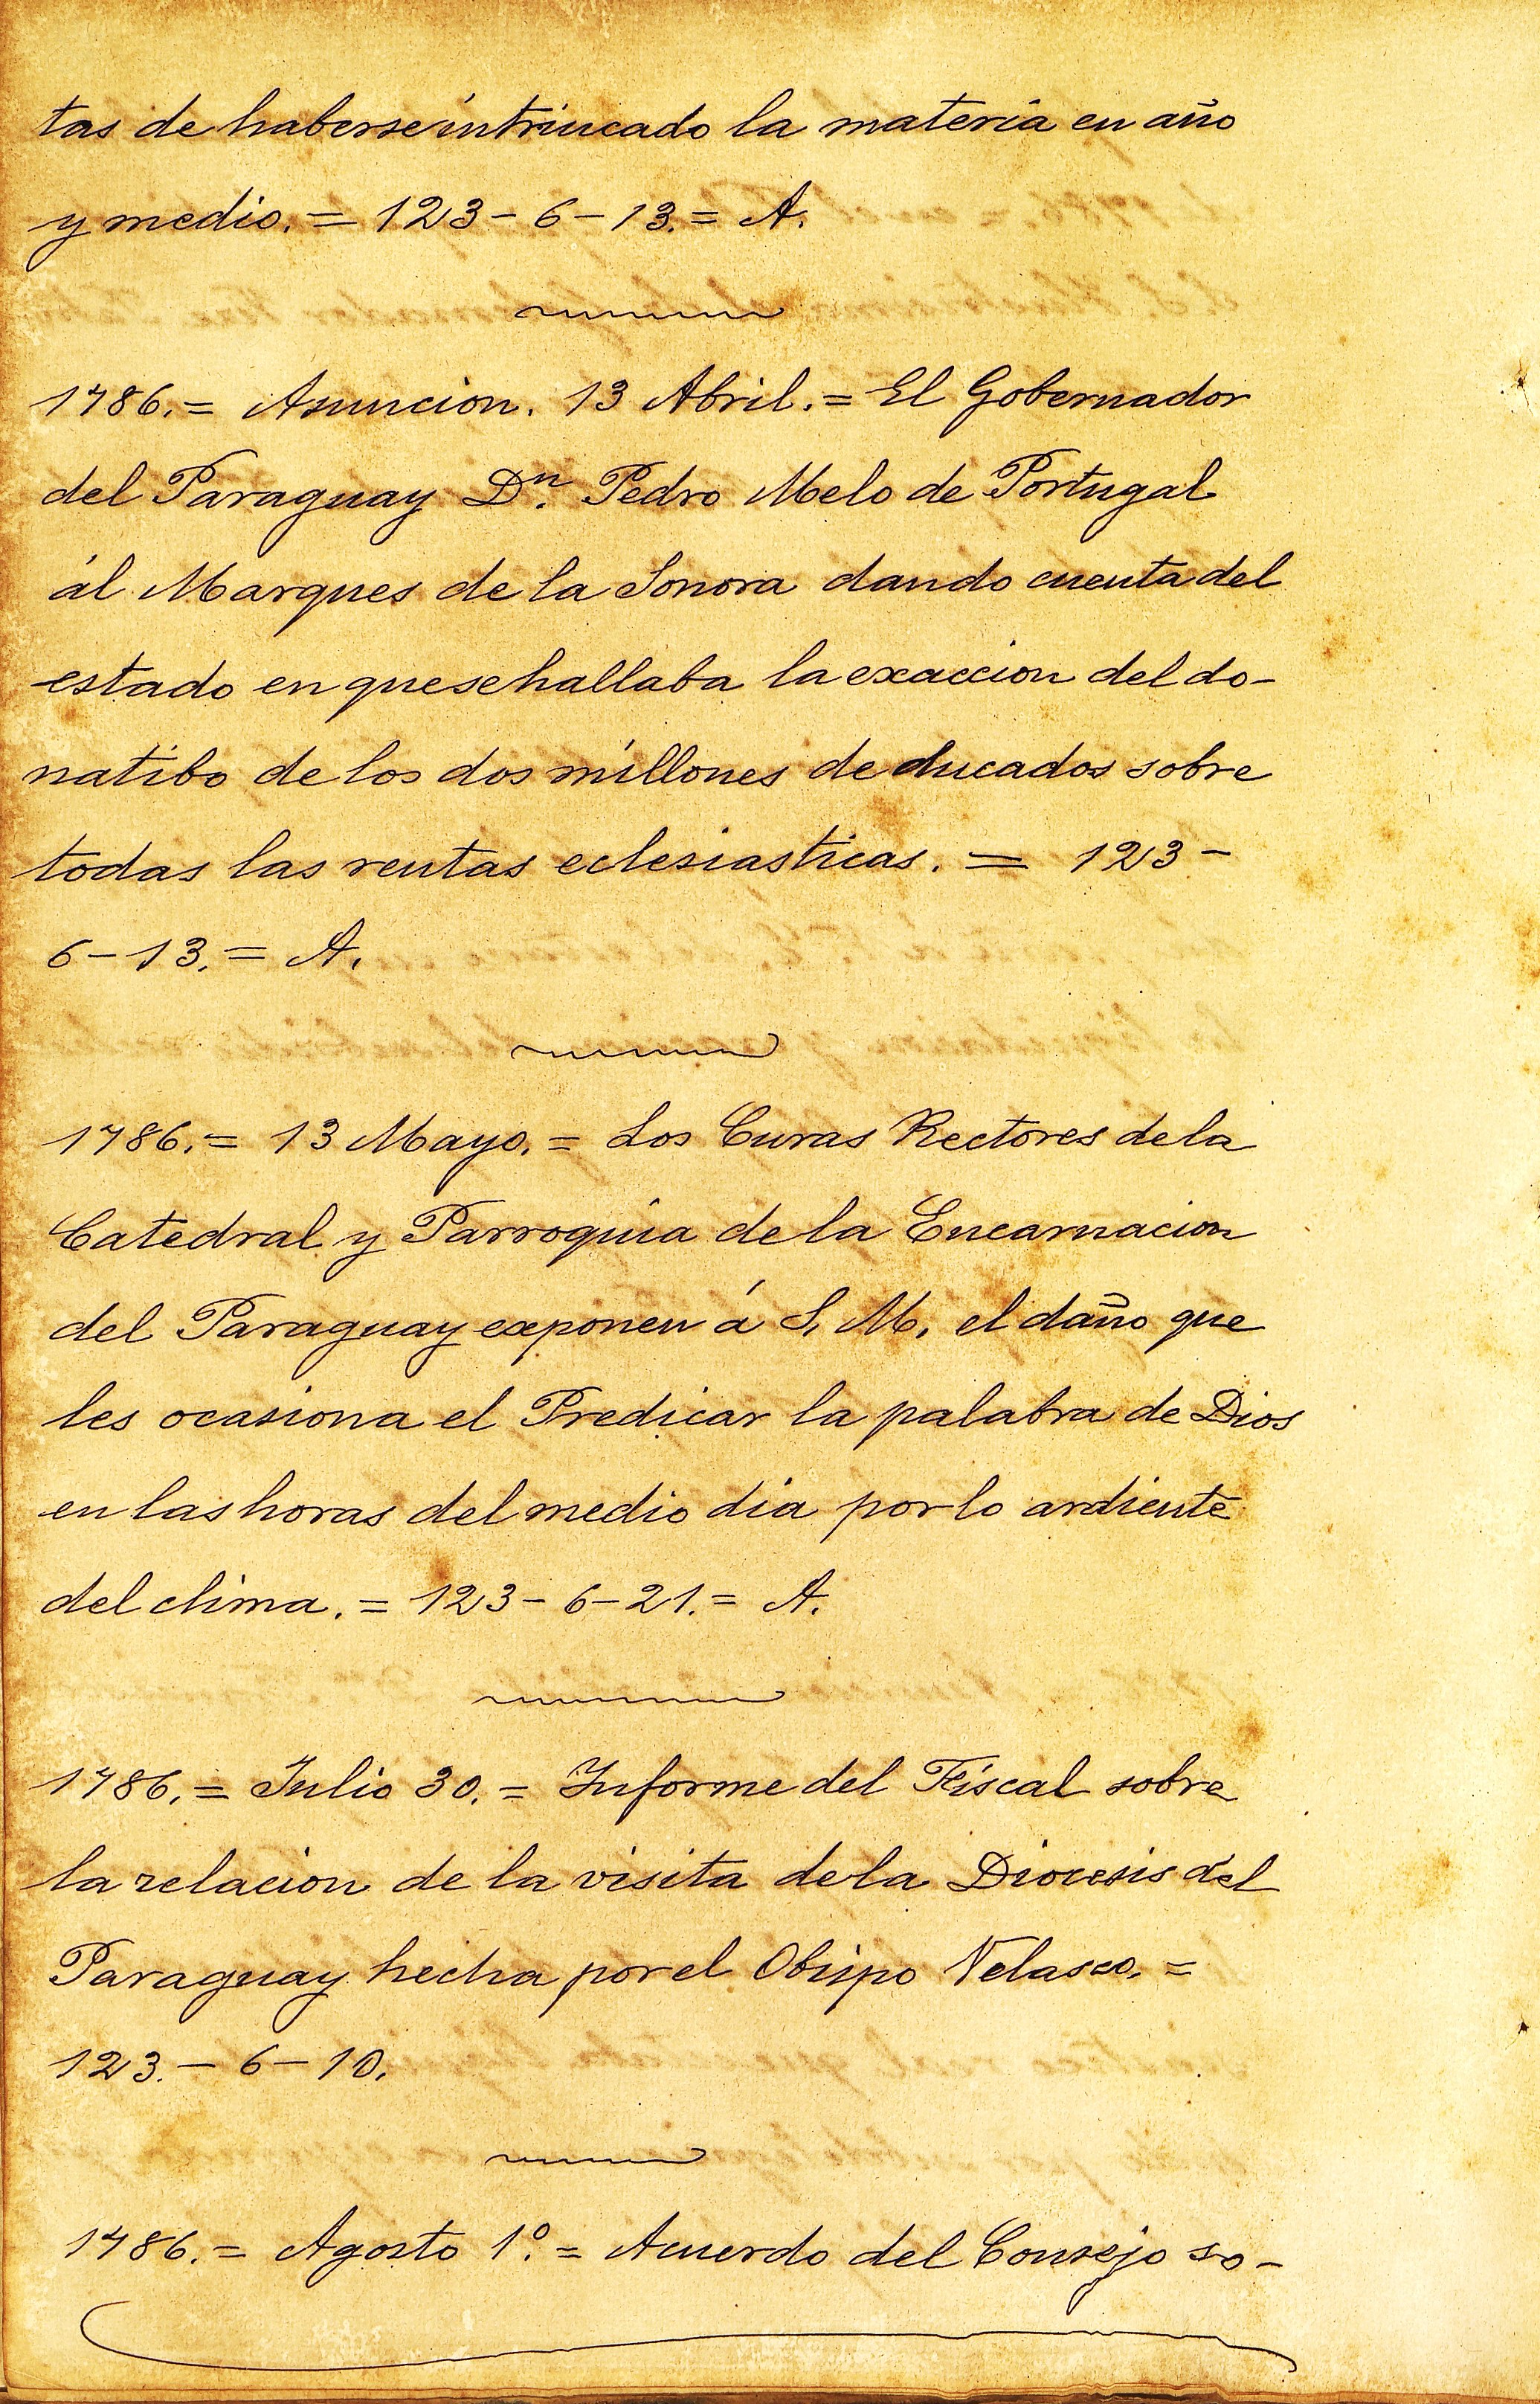 tas de haberse intrincado la materia en año
y medio. = 123 - 6 - 13. = A.
1786. = Asuncion. 13 Abril. = El Gobernador
del Paraguay Dn. Pedro Melo de Portugal
ál Marques de la Sonora dando cuenta del
estado en que se hallaba la exaccion del do-
natibo de los dos millones de ducados sobre
todas las rentas eclesiasticas. = 123 -
6 - 13. = A.
1786. = 13 Mayo. = Los Curas Rectores de la
Catedral y Parroquia de la Encarnacion
del Paraguay exponen á S. M. el daño que
les ocasiona el Predicar la palabra de Dios
en las horas del medio dia por lo ardiente
del clima. = 123 - 6 - 21. = A.
1786. = Julio 30. = Informe del Fiscal sobre
la relacion de la visita de la Diocesis del
Paraguay hecha por el Obispo Velasco. =
123. - 6 - 10.
1786. = Agosto 1º. = Acuerdo del Consejo so-